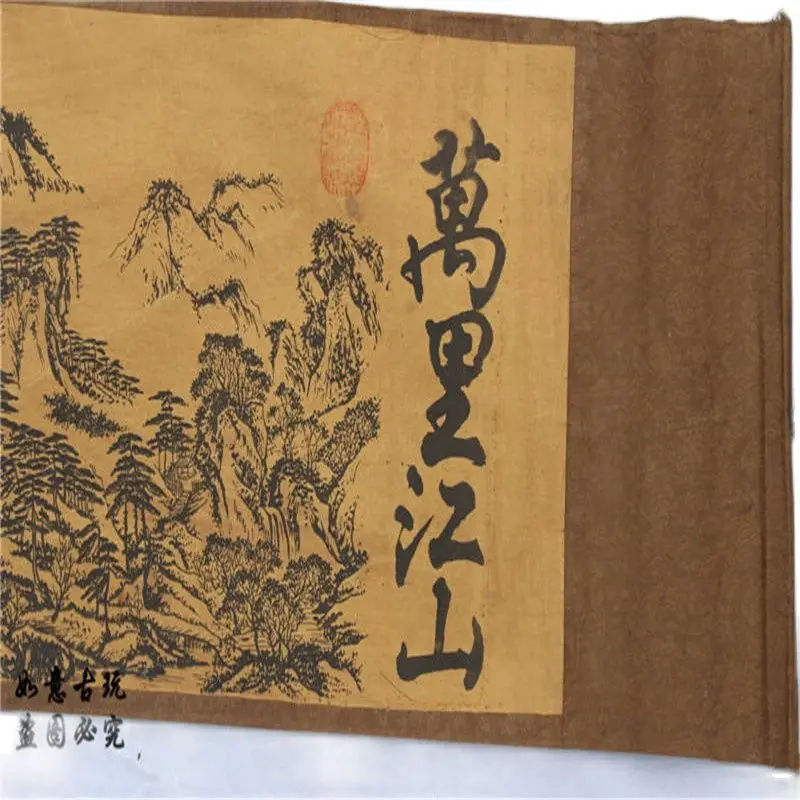 萬里江山
如意古玩
盗图必究